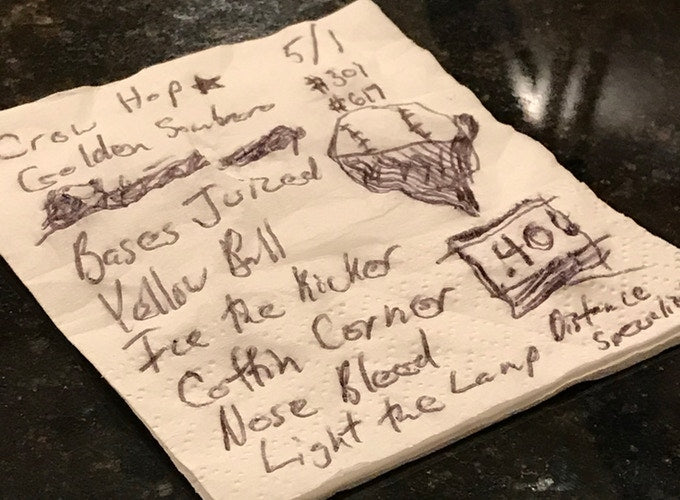 Crow Hop ★ 5/1
#307
#617
Golden Sombrero
Bases Juiced
Yellow Ball
.400
Ice the Kicker
Coffin Corner
Nose Bleed
Distance
Light the Lamp